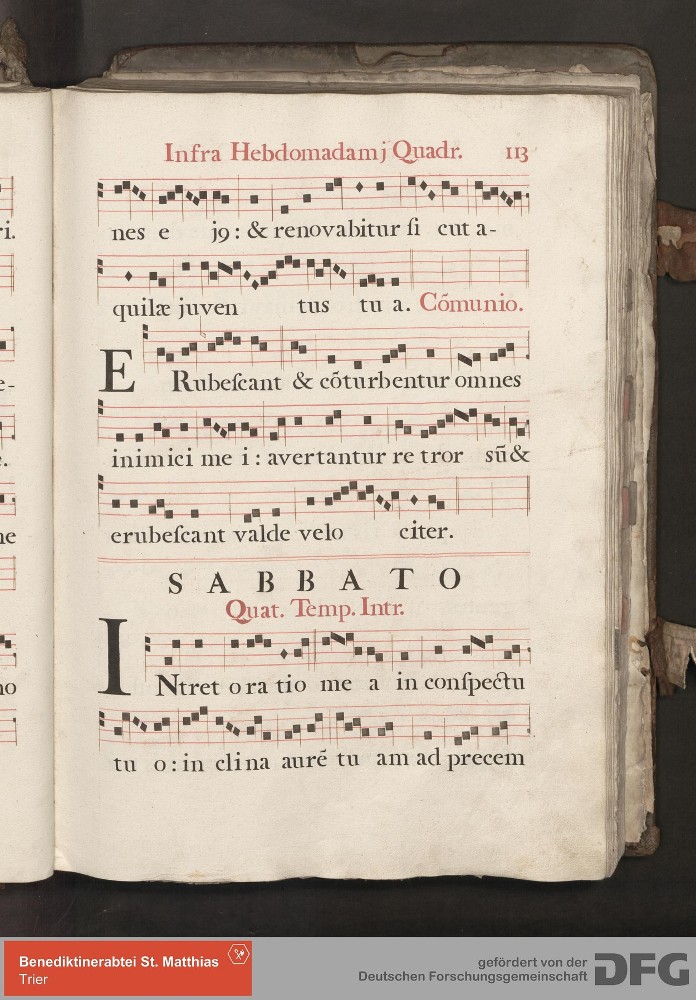 Infra Hebdomadam j Quadr. 113
ri.
nes e jꝯ: & renovabitur ſi cut a-
quilæ juven tus tu a. Cõmunio.
e-
ERubeſcant & cõturbentur omnes
e.
inimici me i: avertantur re tror sũ &
ne
erubeſcant valde velo citer.
SABBATO
Quat. Temp. Intr.
no
INtret oratio me a in conſpectu
tu o: in clina aurẽ tu am ad precem
Benediktinerabtei St. Matthias
Trier
gefördert von der
Deutschen Forschungsgemeinschaft
DFG